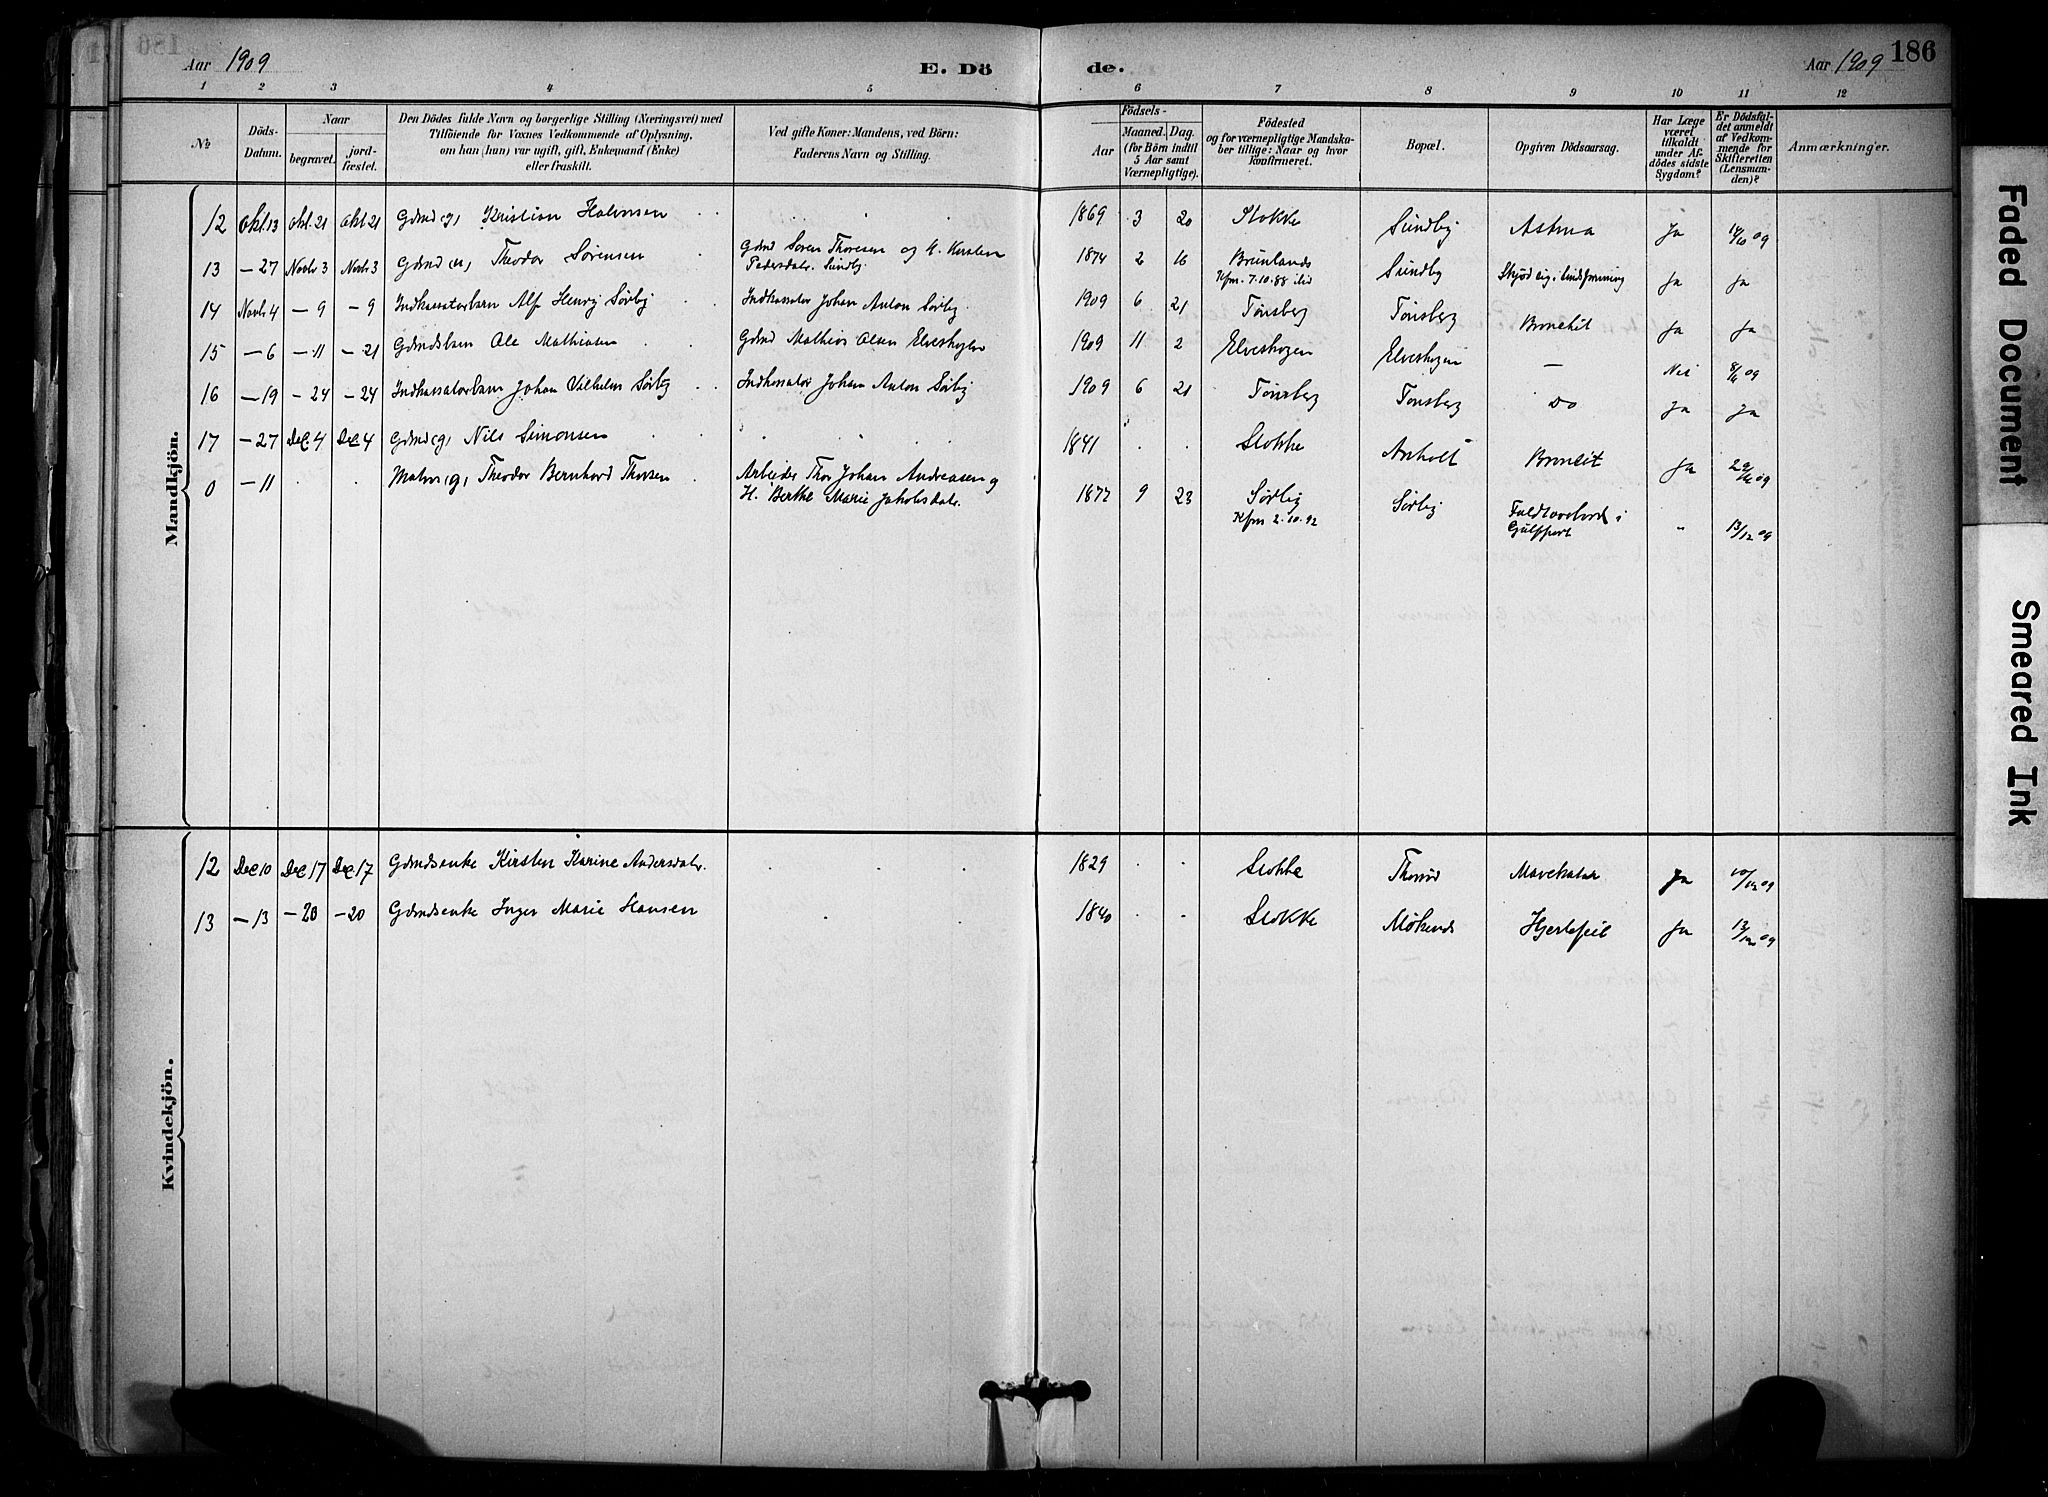 186
Aar 1909
E. Dö
de.
Aar 1909
1 2 3 4 5 6 7 8 9 10 11 12
№
Döds-Datum.
Naar
begravet.
jord-fæstet.
Den Dödes fulde Navn og borgerlige Stilling (Næringsvei) med
Tilföiende for Voxnes Vedkommende af Oplysning,
om han (hun) var ugift, gift, Enkemand (Enke)
eller fraskilt.
Ved gifte Koner: Mandens, ved Börn:
Faderens Navn og Stilling.
Födsels-
Aar
Maaned.
Dag.
(for Börn indtil
5 Aar samt
Værnepligtige).
Födested
og for værnepligtige Mandska-
ber tillige: Naar og hvor
konfirmeret.
Bopæl.
Opgiven Dödsaarsag.
Har Læge
været
tilkaldt
under Af-
dödes sidste
Sygdom?
Er Dödsfal-
det anmeldt
af Vedkom-
mende for
Skifteretten
(Lensman-
den)?
Anmærkninger.
Mandkjön.
12 Okt. 13 Okt. 21 Okt 21 Gdmd (g) Kristian Halvorsen 1869 3 20 Stokke Sundby Astma Ja 14/10 09
13 — 27 Novbr 3 Novbr 3 Gdmd Theodor Sörensen Gdmd Soren Thoresen og H. Kirsten
Pedersdatr. Sundby 1874 2 16 Brunlands
Kfm. 7.10.88 Sundby Ja Ja
14 Novbr 4 — 9 — 9 Indkassatorbarn Alf Henry Sörby Indkassator Johan Anton Sörby 1909 6 21 Tönsberg Tönsberg Bronchit Ja Ja
15 — 6 — 11 — 21 Gdmdsbarn Ole Mathiasen Gdmd Mathias Olsen Elveskogen 1909 11 2 Elveskogen Elveskogen — Nei 8/11 09
16 — 19 — 24 — 24 Indkassatorbarn Johan Vilhelm Sörby Indkassator Johan Anton Sörby 1909 6 21 Tönsberg Tönsberg Do Ja Ja
17 — 27 Dec. 4 Dec 4 Gdmd (g) Nils Simonsen 1841 Stokke Anholt Bronchit Ja 29/11 09
0 — 11 Matros (g) Theodor Bernhard Thorsen Arbeider Thor Johan Andreasen og
H. Berthe Marie Jakobsdatr. 1877 9 23 Sörby
Kfm 2.10.92 Sörby Faldt overbord i
Gulfport " 13/12 09
Kvindekjön.
12 Dec 10 Dec 17 Dec 17 Gdmdsenke Kirsten Karine Andersdatr. 1829 Stokke Thorröd Mavekatar Ja 10/12 09
13 — 13 — 20 — 20 Gdmdsenke Inger Marie Hansen 1840 Stokke Hjertefeil Ja 13/12 09
Faded Document
Smeared Ink